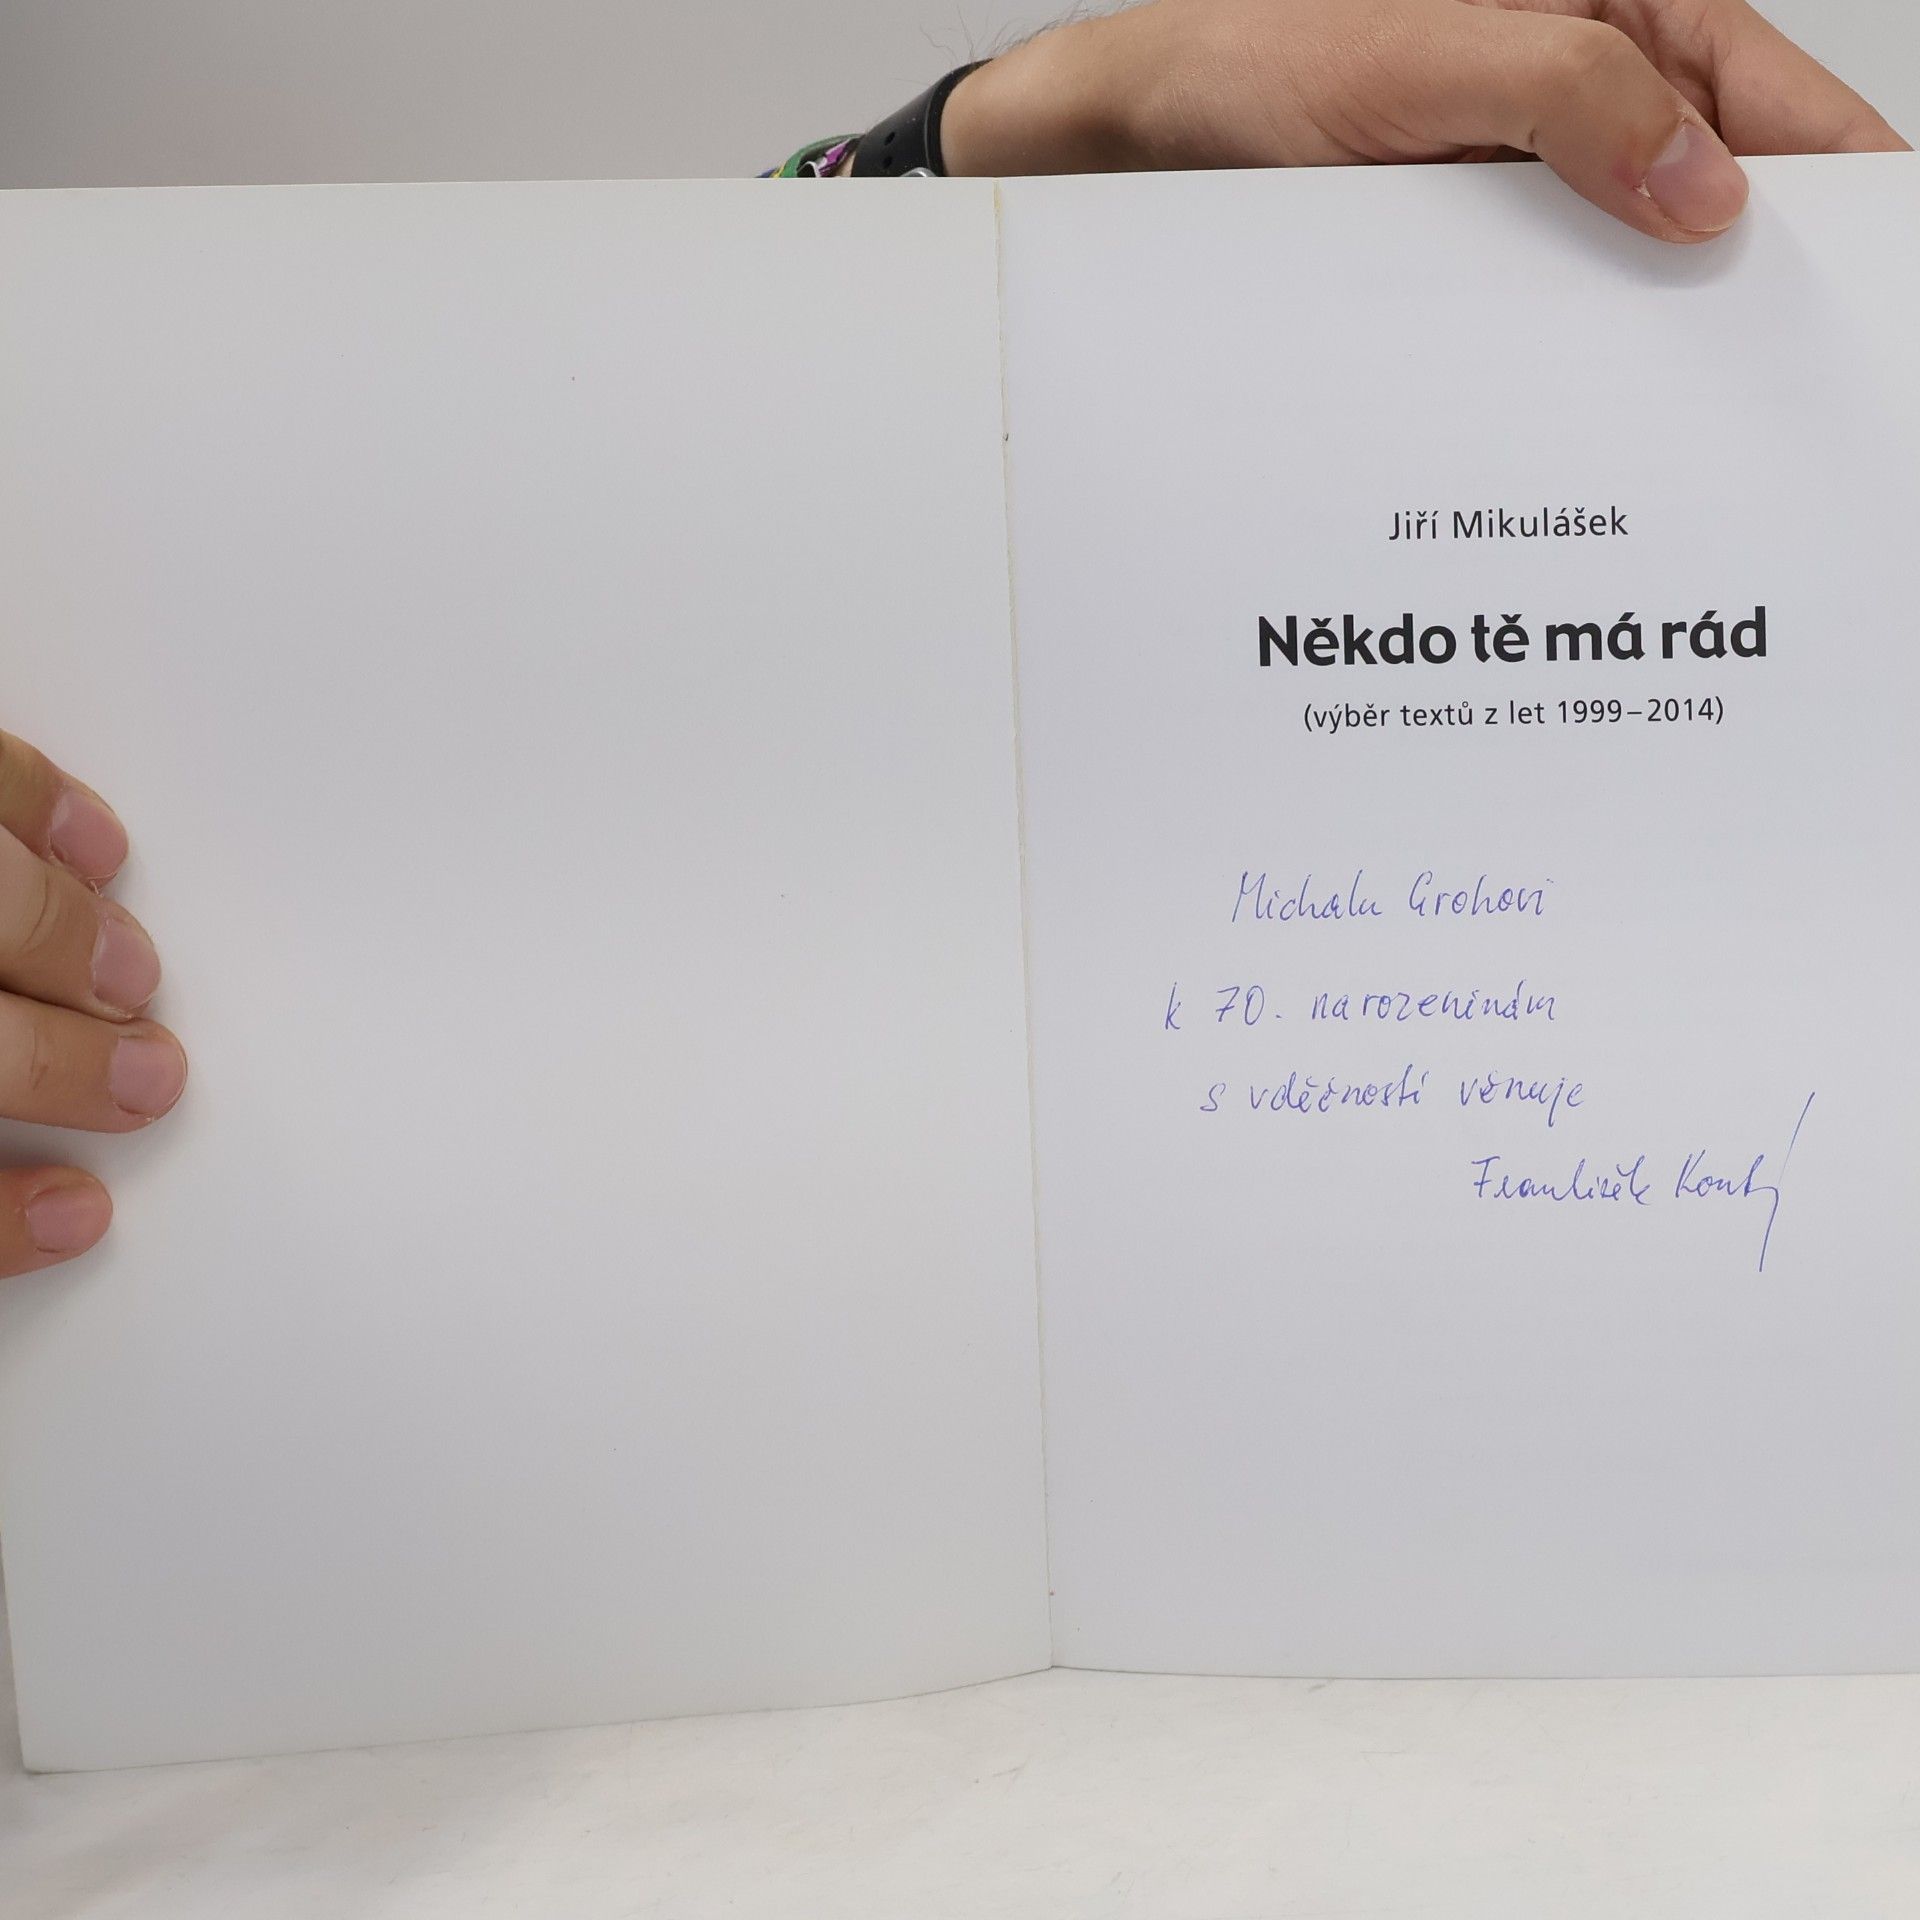 Jiří Mikulášek
Někdo tě má rád
(výběr textů z let 1999–2014)
Michalu Grohovi
k 70. narozeninám
s vděčností věnuje
František